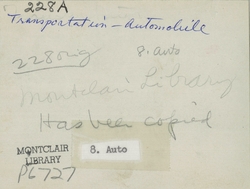 228A
Transportation - Automobile
228 org
8. Auto
Montclair Library
Has been copied
MONTCLAIR
LIBRARY
8. Auto
P6727